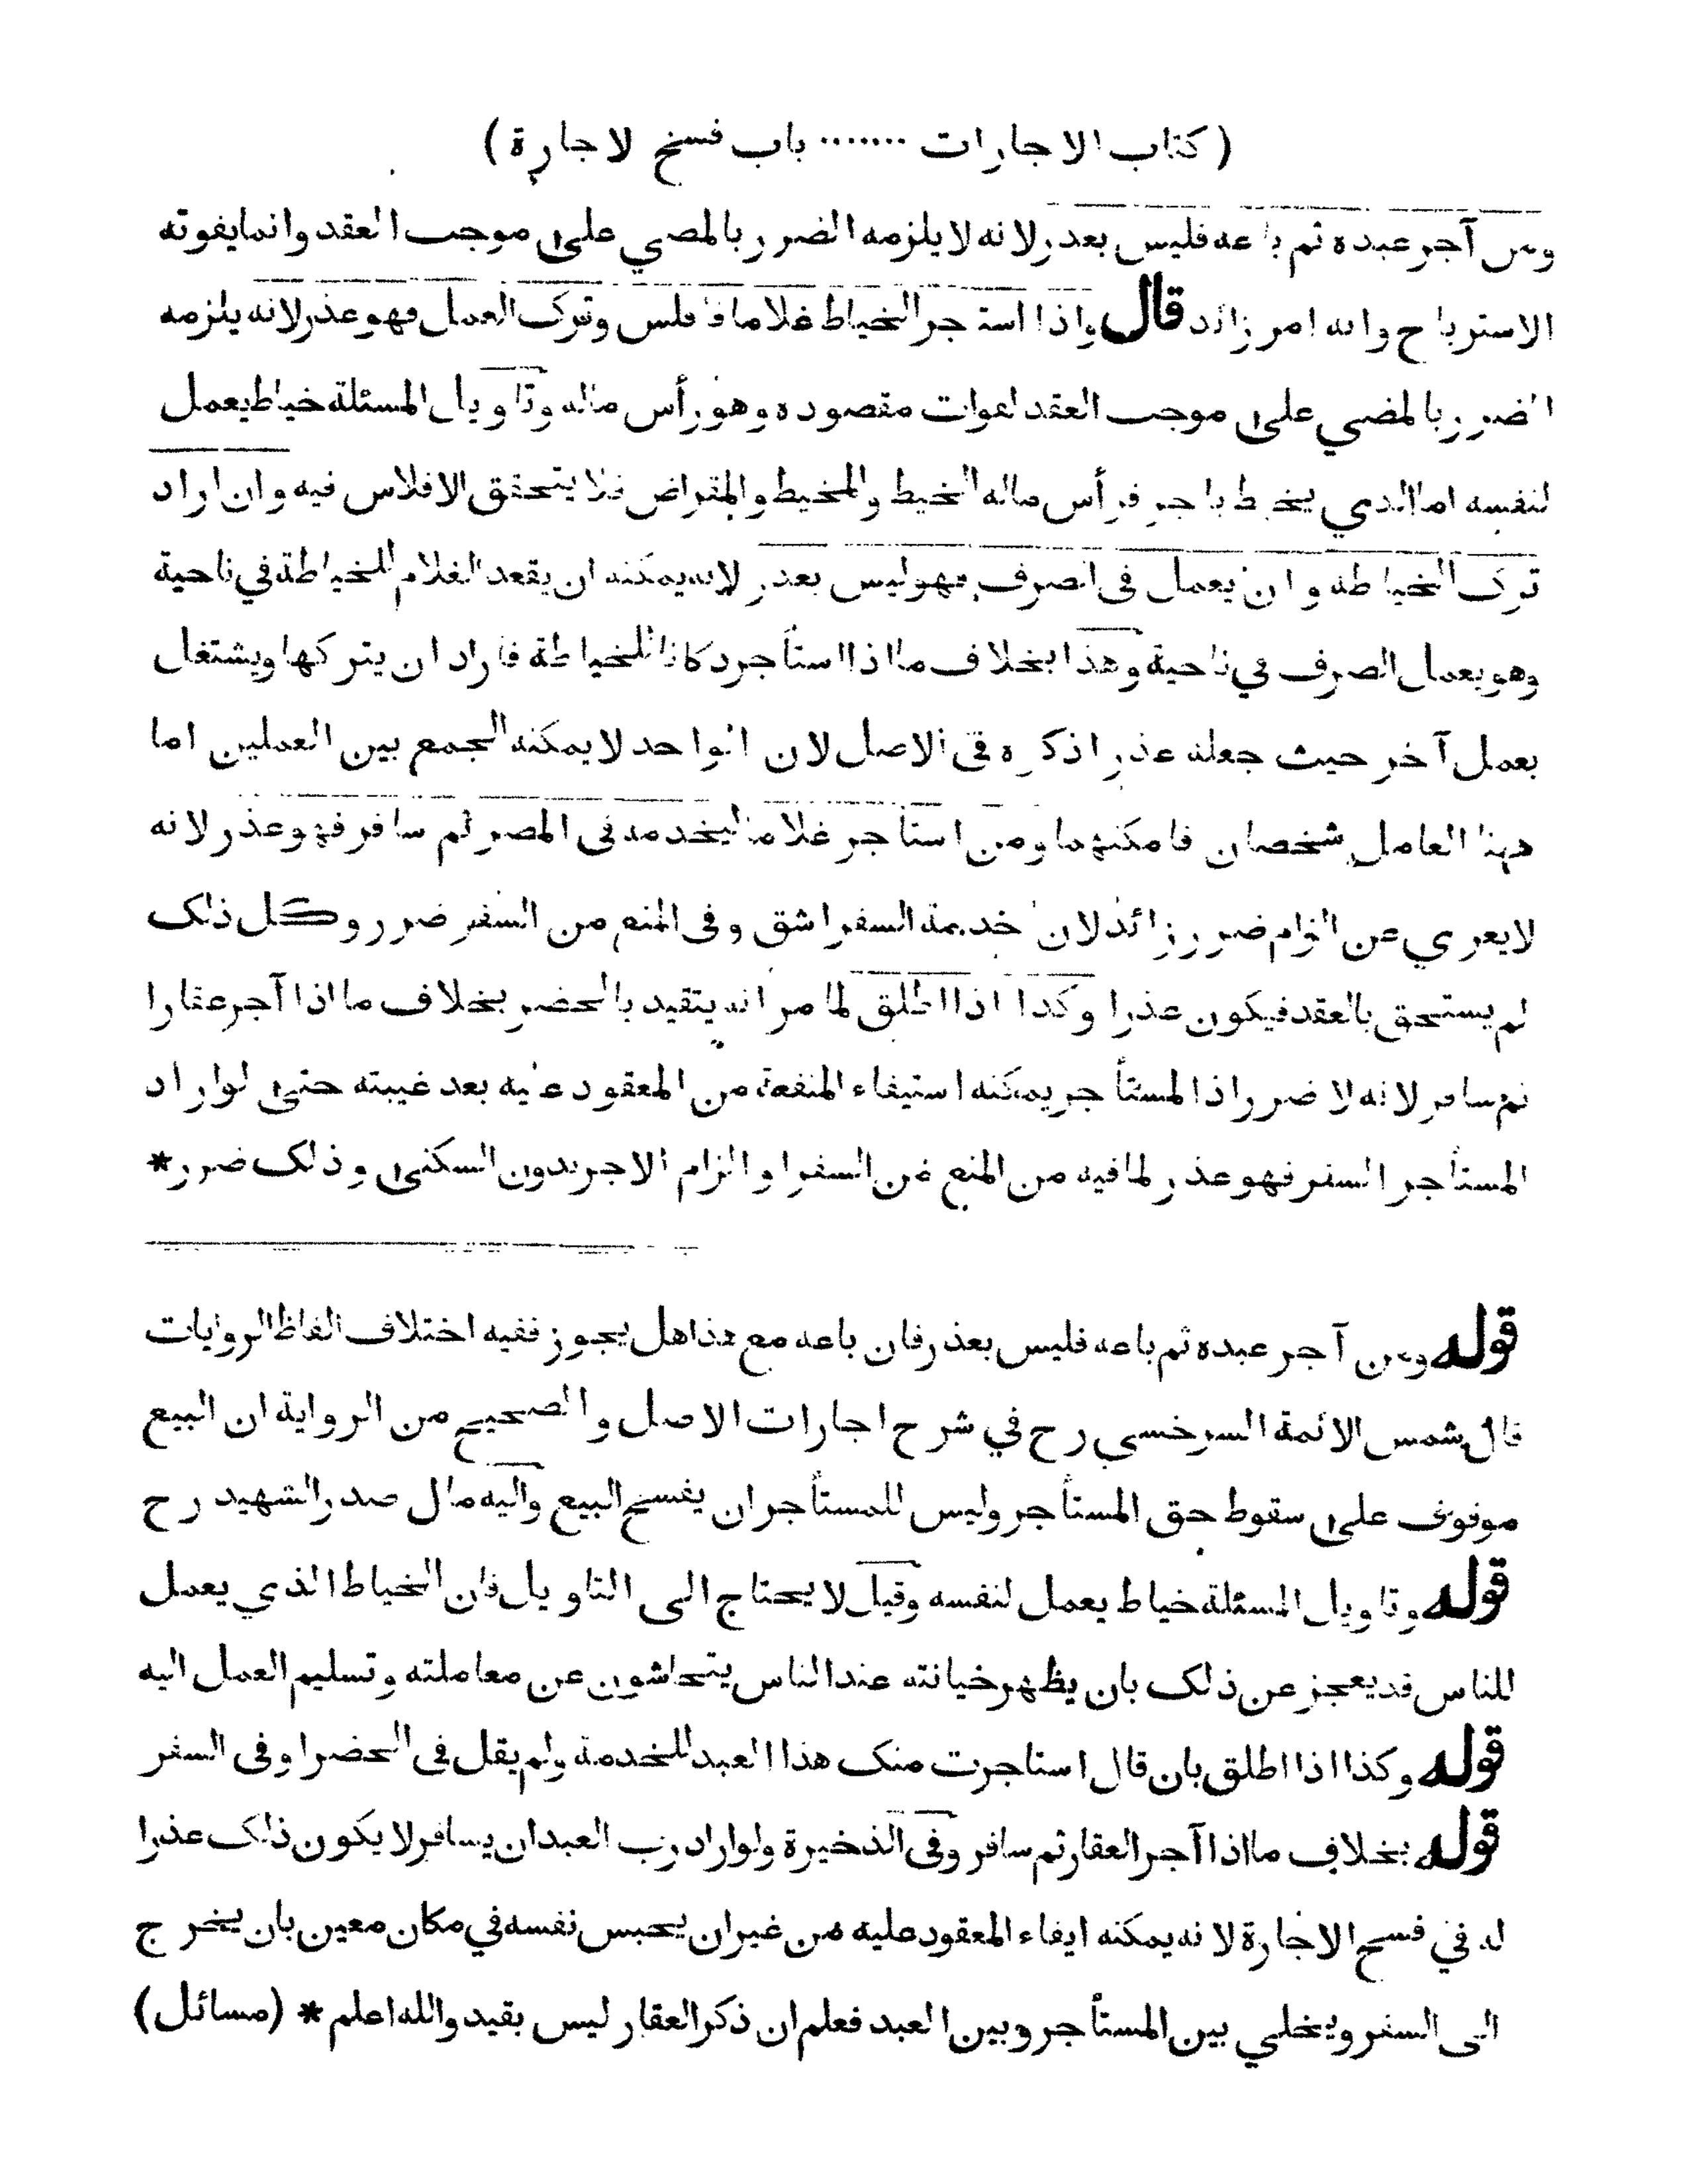 ( كتاب الاجارات ....... باب فسخ لاجارة )
ومن آجر عبده ثم باعه فليس بعذر لانه لا يلزمه الضرر بالمصي على موجب العقد وانما يفوته
الاسترباح وانه امر زائد قال واذا استاجر الخياط غلاما فافلس وترك العمل فهو عذر لانه يلزمه
الضرر بالمضي على موجب العقد لفوات مقصوده وهو رأس ماله وتاويل المسئلة خياط يعمل
لنفسه اما الذي يخيط باجر فرأس ماله الخيط والمخيط والمقراض فلا يتحقق الافلاس فيه وان اراد
ترك الخياطة وان يعمل في الصرف فهو ليس بعذر لانه يمكنه ان يقعد الغلام للخياطة في ناحية
وهو يعمل الصرف في ناحية وهذا بخلاف ما اذا استأجر دكانا للخياطة فاراد ان يتركها ويشتغل
بعمل آخر حيث جعله عذرا ذكره في الاصل لان الواحد لا يمكنه الجمع بين العملين اما
ههنا العامل شخصان فامكنهما ومن استاجر غلاما ليخدمه في المصر ثم سافر فهو عذر لانه
لا يعري عن الزام ضرر زائد لان خدمة السفر اشق وفي المنع من السفر ضرر وكل ذلك
لم يستحق بالعقد فيكون عذرا وكذا اذا اطلق لما مر انه يتقيد بالحضر بخلاف ما اذا آجر عقارا
ثم سافر لانه لا ضرر اذ المستأجر يمكنه استيفاء المنفعة من المعقود عليه بعد غيبته حتى لو اراد
المستأجر السفر فهو عذر لما فيه من المنع من السفر او الزام الاجر بدون السكنى وذلك ضرر *
قوله ومن آجر عبده ثم باعه فليس بعذر فان باعه مع هذا هل يجوز ففيه اختلاف الفاظ الروايات
قال شمس الائمة السرخسي رح في شرح اجارات الاصل والصحيح من الرواية ان البيع
موقوف على سقوط حق المستأجر وليس للمستأجر ان يفسخ البيع واليه مال صدر الشهيد رح
قوله وتاويل المسئلة خياط يعمل لنفسه وقيل لا يحتاج الى التاويل فان الخياط الذي يعمل
للناس قد يعجز عن ذلك بان يظهر خيانته عند الناس يتحاشون عن معاملته وتسليم العمل اليه
قوله وكذا اذا اطلق بان قال استاجرت منك هذا العبد للخدمة ولم يقل في الحضر او في السفر
قوله بخلاف ما اذا آجر العقار ثم سافر وفي الذخيرة ولو اراد رب العبد ان يسافر لا يكون ذلك عذرا
له في فسخ الاجارة لانه يمكنه ايفاء المعقود عليه من غير ان يحبس نفسه في مكان معين بان يخرج
الى السفر ويخلي بين المستأجر وبين العبد فعلم ان ذكر العقار ليس بقيد والله اعلم * (مسائل)